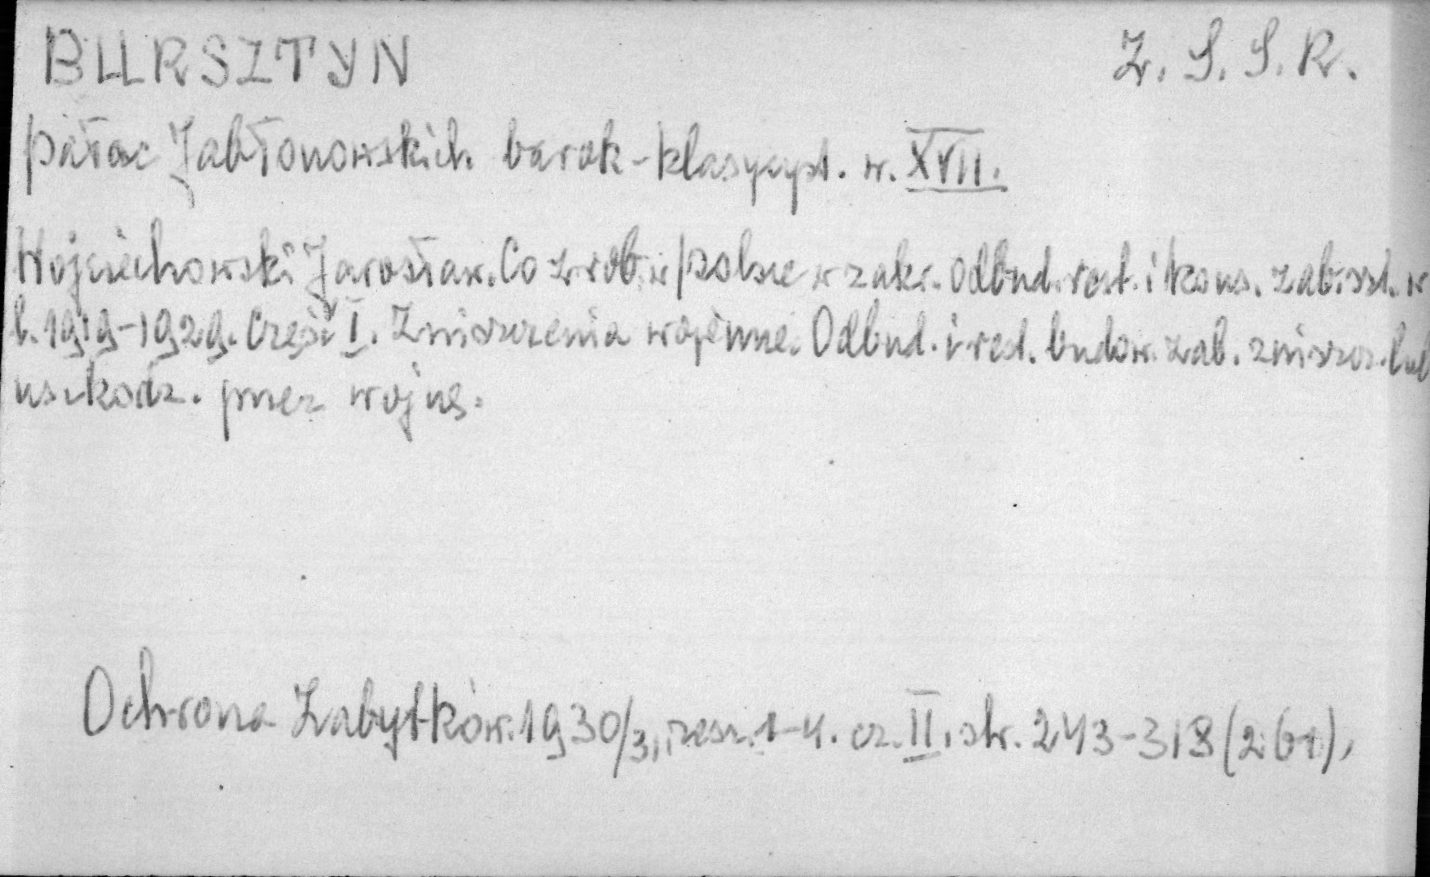 BURSZTYN Z. S. S. R.
pałac Jabłonowskich barok-klasycyst. w. XVII.
Wojciechowski Jarosław. Co zrob. w Polsce w zakr. odbud. rest. i kons. zab. szt. w
l. 1919-1929. Część I. Zniszczenia wojenne. Odbud. i rest. budow. zab. zniszcz. lub
uszkodz. przez wojnę.
Ochrona Zabytków. 1930/31, zesz. 1-4. cz. II. str. 243-318 (261),